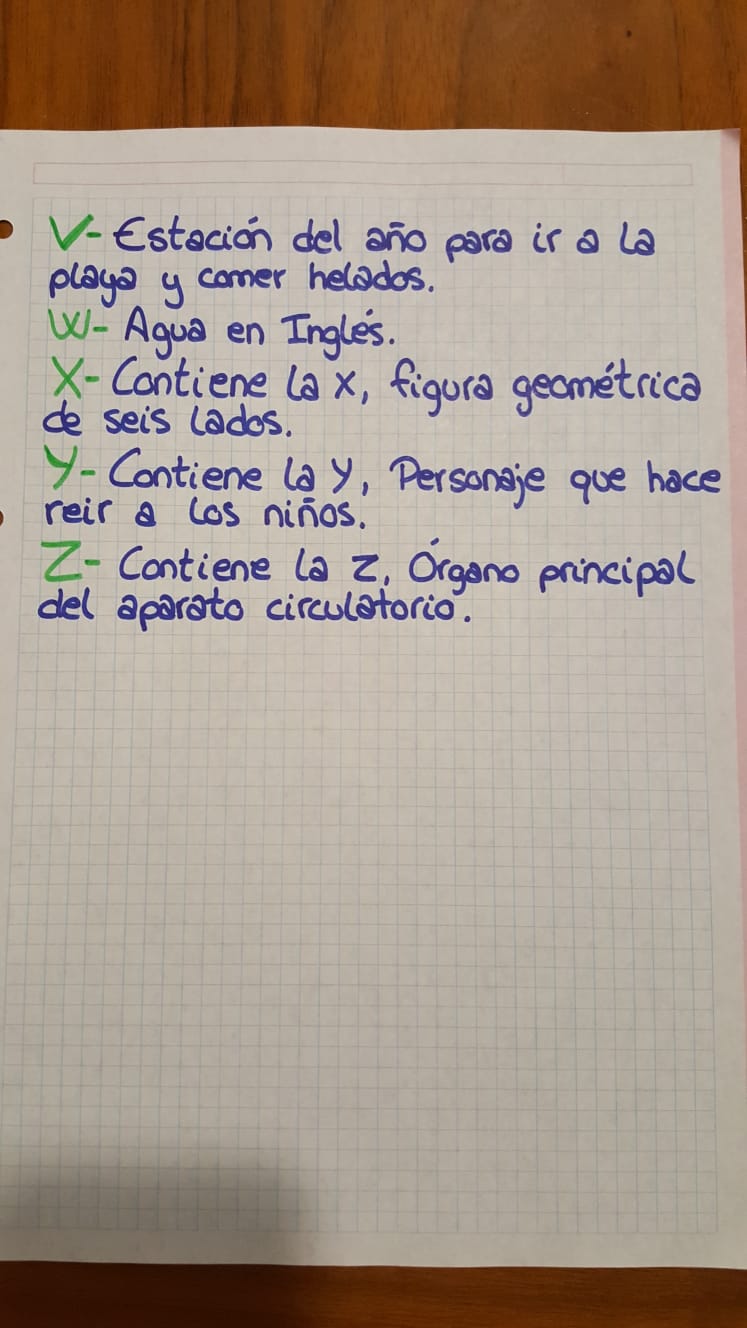 V- Estación del año para ir a la
playa y comer helados.
W- Agua en Inglés.
X- Contiene la x, figura geométrica
de seis lados.
Y- Contiene la y, Personaje que hace
reir a los niños.
Z- Contiene la z, Órgano principal
del aparato circulatorio.